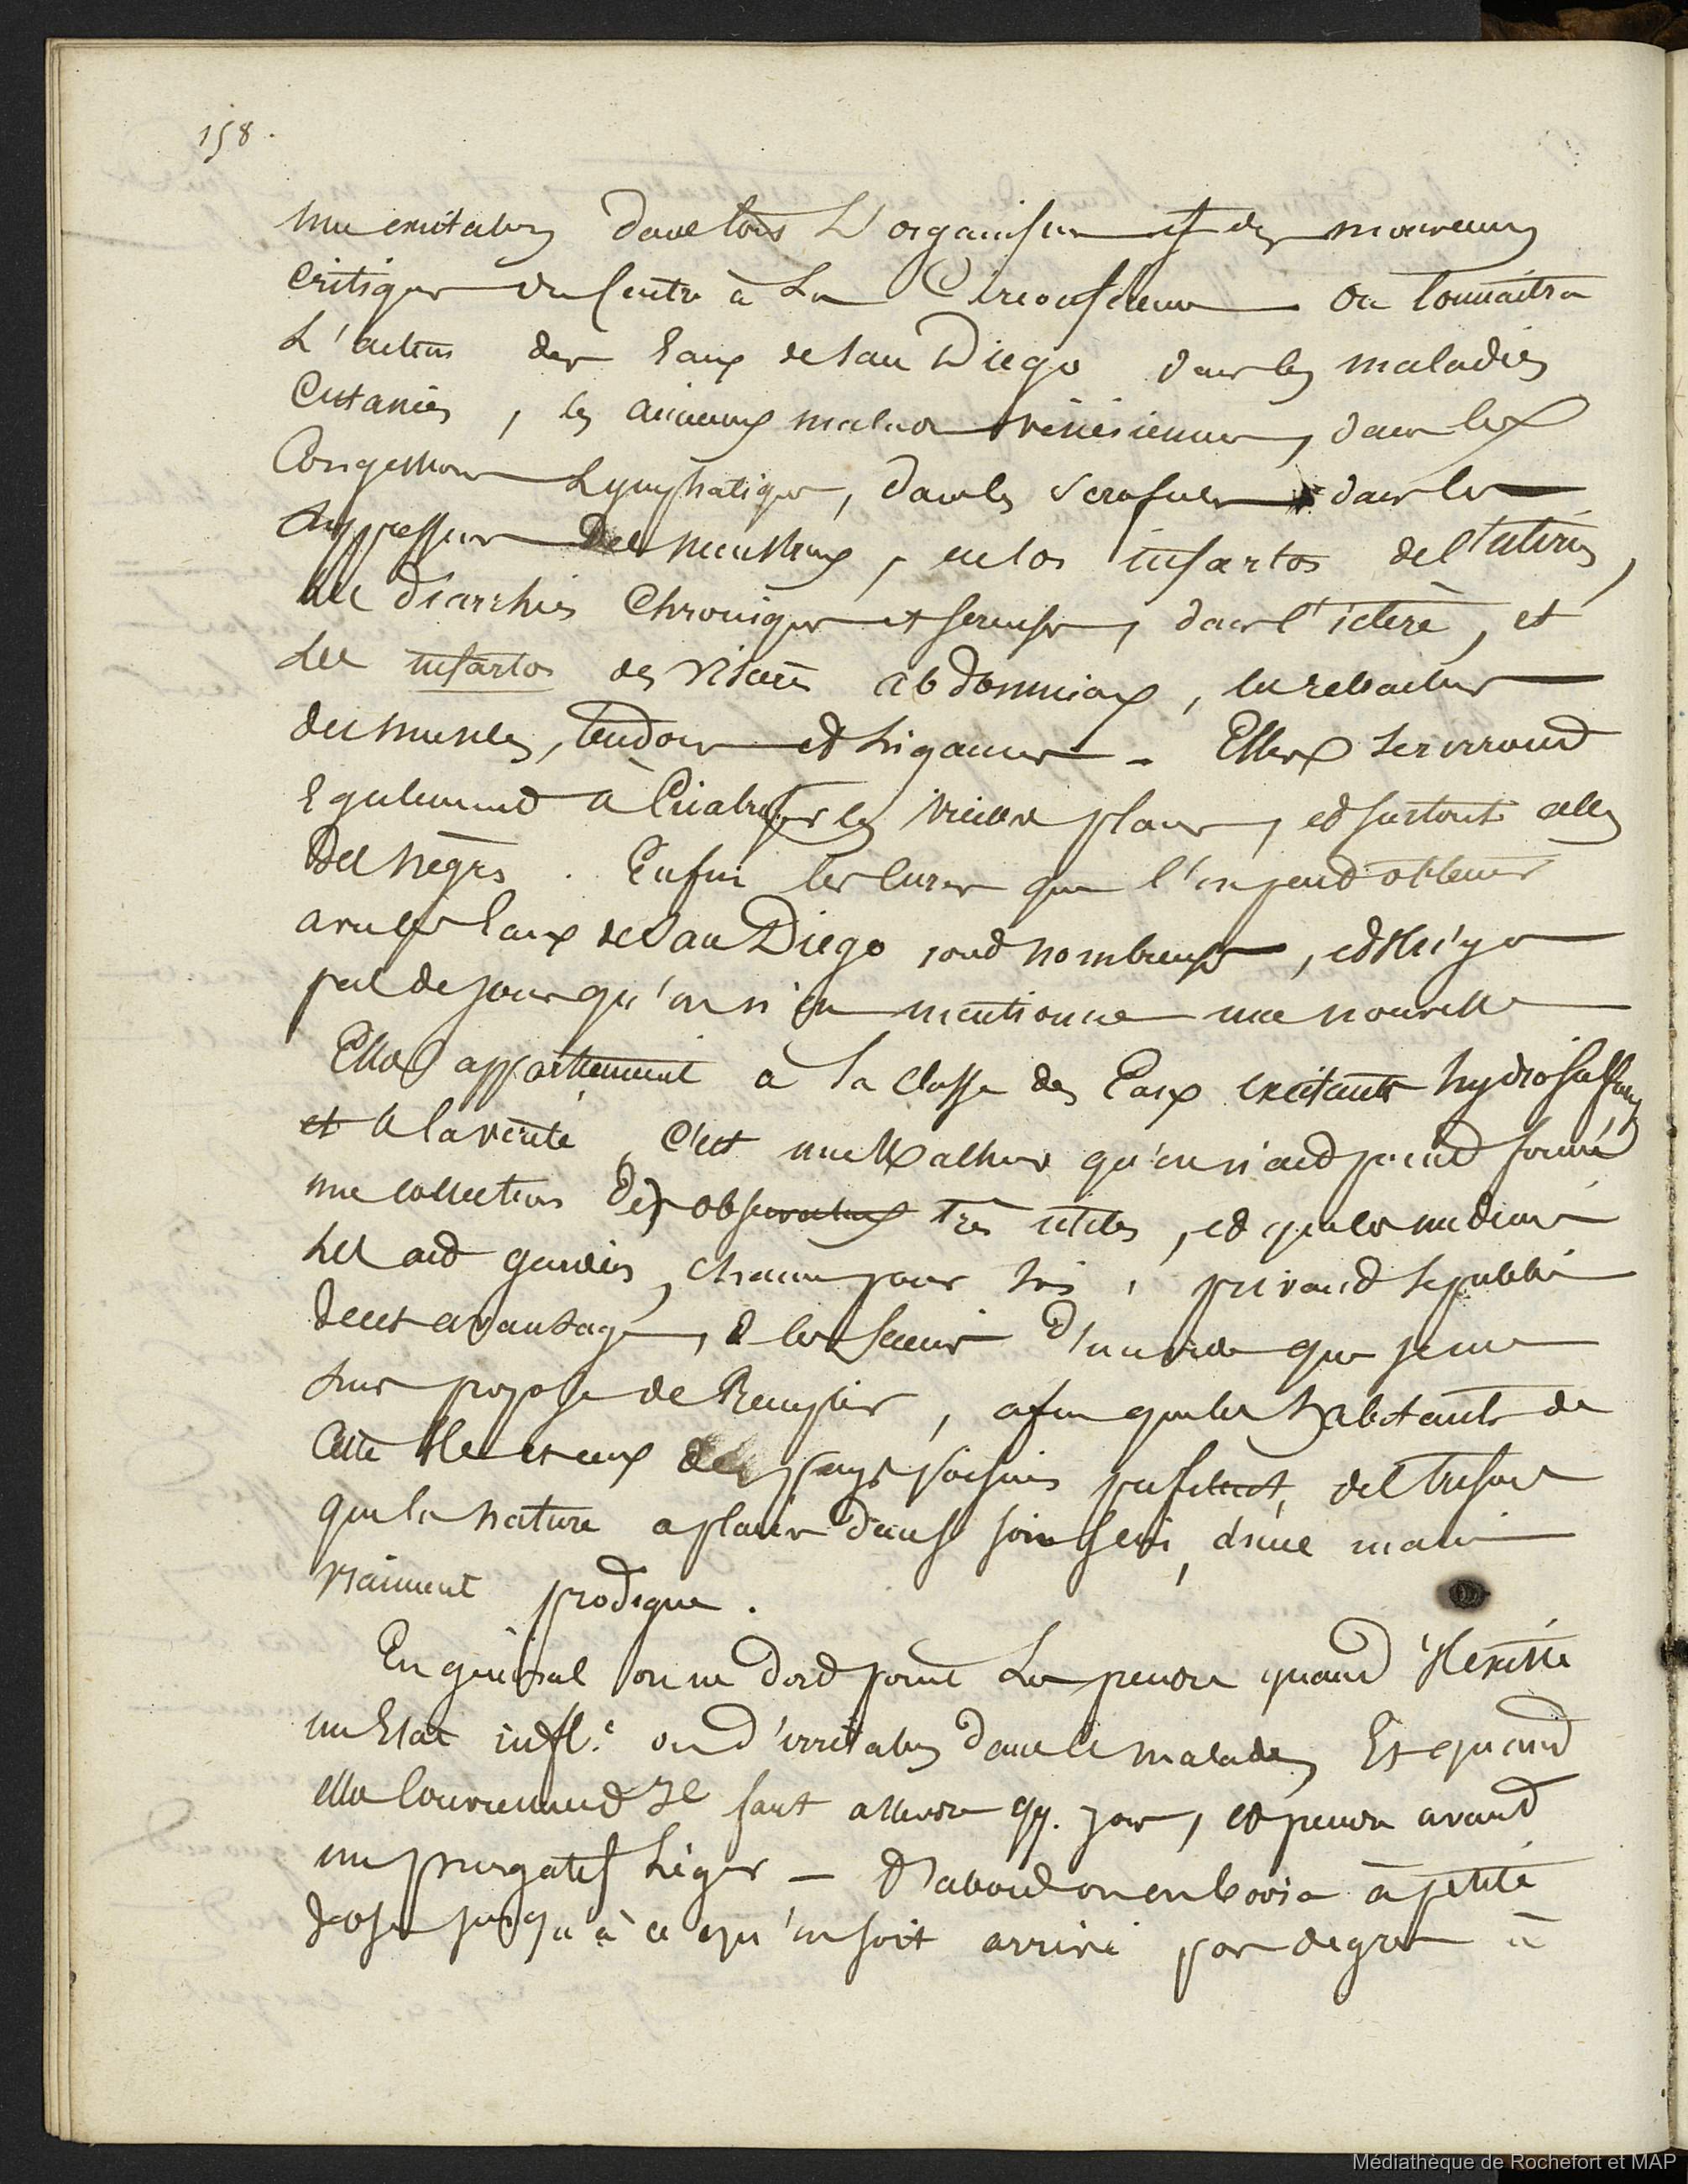 158.
une excitation dans tous l'organisme et des mouvemens
critiques du centre à la circonférence. On connaîtra
l'action des Eaux de San Diego dans les maladies
cutanées, les anciennes maladies vénériennes, dans les
congestions lymphatiques, dans les scrofules dans les
suppressions des menstrues, en los infartos de l'utérus,
les diarrhées chroniques et séreuses, dans l'ictère, et
les infartos des viscères abdominaux, les rétractions
des muscles, tendons et ligamens. Elles serviront
également à cicatriser les vieilles plaies, et surtout celles
des nègres. Enfin les cures que l'on peut obtenir
avec les Eaux de San Diego sont nombreuses, et il n'y a
pas de jour qu'on n'en mentionne une nouvelle
Elles appartiennent à la classe des Eaux excitantes hydrosulfureuses
et à la vérité, c'est un malheur qu'on n'ait point formé
une collection des observations très utiles, et que les médecins
les ait gardées, chacun pour soi, privant le public
de cet avantage, & les sciences d'un vide que je me
suis proposé de remplir, afin que les habitants de
cette Ile et ceux des pays voisins profitent des trésors
que la nature a placés dans son sein, d'une main
vraiment prodigue.
En général on ne doit point les prendre quand il existe
un Etat infl.e ou d'irritation dans le malade, Et quand
elles conviennent il faut attendre qq. jours, et prendre avant
un purgatif léger — D'abord on en boira à petite
dose jusqu'à ce qu'on soit arrivé par degrés à
Médiathèque de Rochefort et MAP